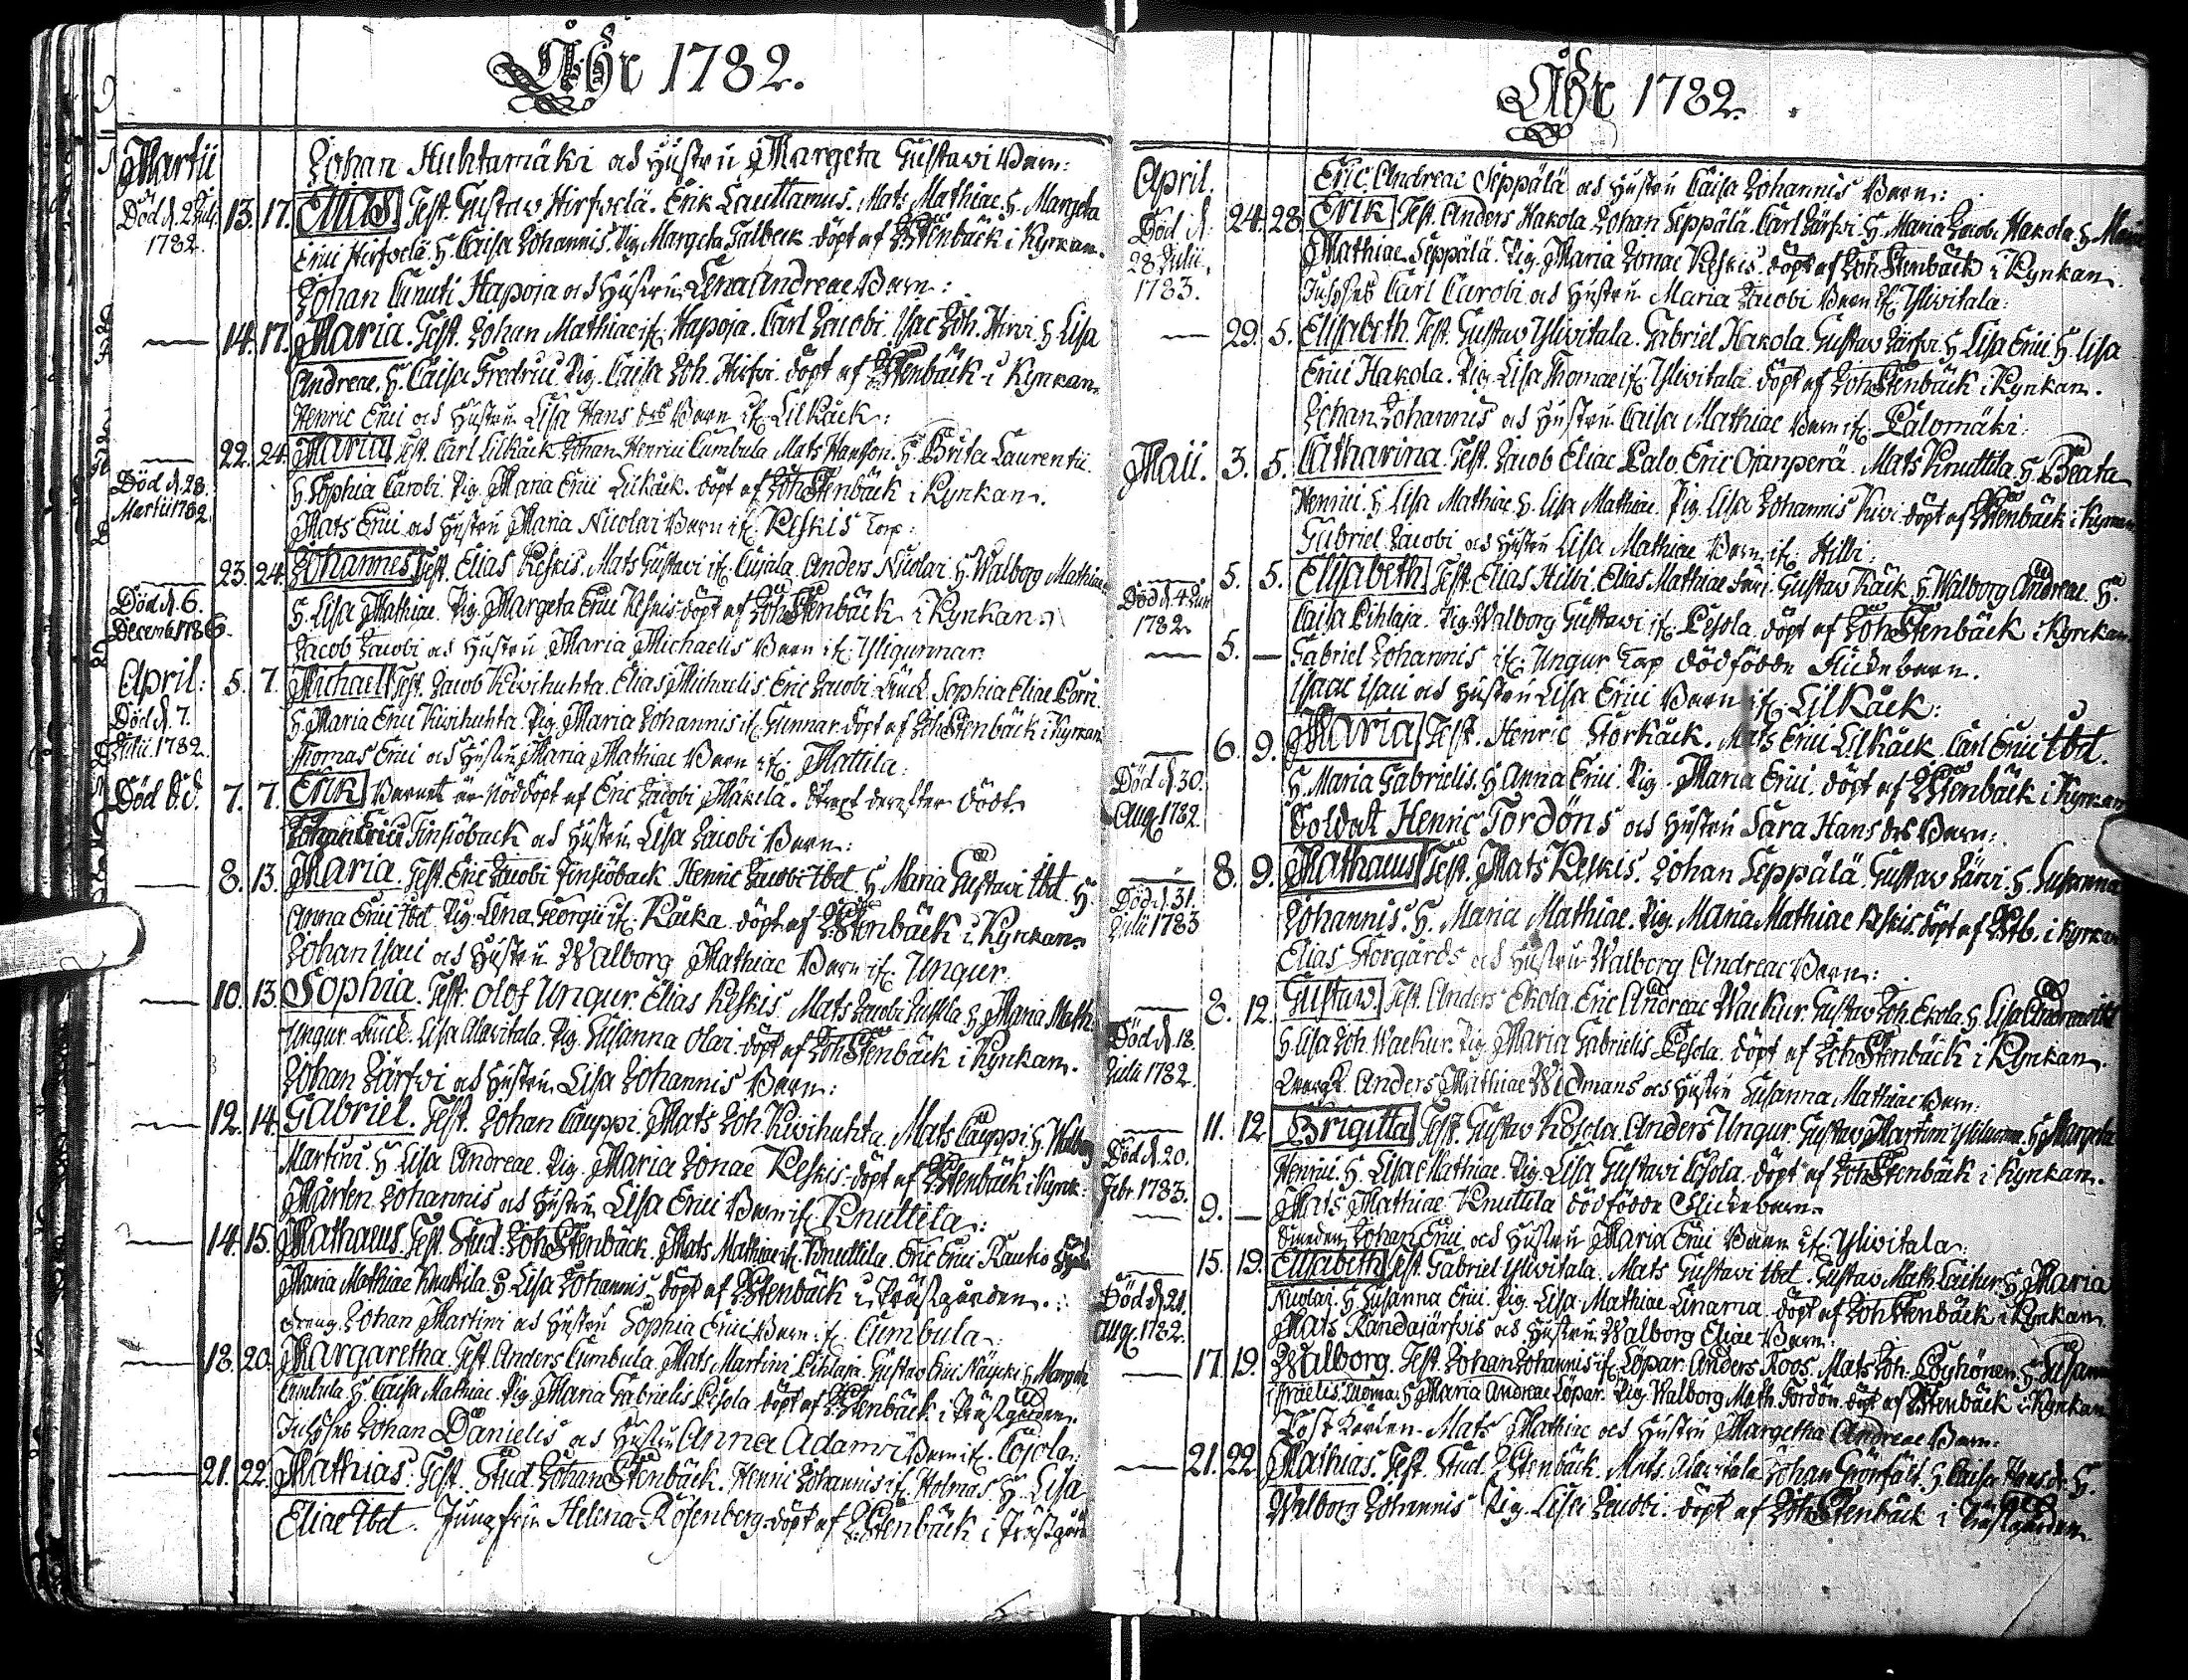 Åhr 1782.
Martii
Johan Huhtamäki och Hustru Margeta Gustavi Barn:
Död d. 2 Juli 13. 17. Elias. Test. Gustav Hirfvelä. Erik Lauttamus. Mats Mathiae. H. Margeta
1782. Erici Hirfvelä. H. Caisa Johannis. Pig. Margeta Talbeck. döpt af J. Stenbäck i Kyrkan.
Johan Cnuti Hapoja och Hustru Lena Andreae Barn:
14. 17. Maria. Test. Johan Mathiae if. Hapoja. Carl Jacobi. Isac Joh. Hirvi. H. Lisa
Andreae. H. Caisa Fredrici. Pig. Caisa Joh. Hirfvi. döpt af J. Stenbäck i Kyrkan.
Henric Erici och Hustru Lisa Hans dr Barn if. Lilkåck:
22. 24. Maria. Test. Carl Lilkåck. Johan Henrici Cumbula. Mats Hansson. H. Brita Laurentii.
Död d. 28. Martii 1782. H. Sophia Caroli. Pig. Maria Erici Lilkåck. döpt af Joh. Stenbäck i Kyrkan.
Mats Erici och Hustru Maria Nicolai Barn if. Keskis Torp:
23. 24. Johannes. Test. Elias Keskis. Mats Gustavi if. Cujala. Anders Nicolai. H. Walborg Mathiae
Död d. 6. Decemb. 1786. H. Lisa Mathiae. Pig. Margeta Erici Keskis. döpt af Joh. Stenbäck i Kyrkan.
Jacob Jacobi och Hustru Maria Michaelis Barn if. Yligunnar.
April: 5. 7. Michael. Test. Jacob Kivihuhta. Elias Michaelis. Eric Jacobi Lruck. Sophia Eliae Porri.
Död d. 7. Julii 1782. H. Maria Erici Kivihuhta. Pig. Maria Johannis if. Gunnar. döpt af Joh. Stenbäck i Kyrkan
Thomas Erici och Hustru Maria Mathiae Barn if. Mattila:
Död d. d. 7. 7. Erik. Barnet är Nöddöpt af Eric Jacobi Mäkelä. Straxt derefter dödt.
Johan Erici Finsjöback och Hustru Lisa Jacobi Barn:
8. 13. Maria. Test. Eric Jacobi Finsjöback. Henric Jacobi Ibd. H. Maria Gustavi Ibd. H.
Anna Erici Ibd. Pig. Lena Georgii if. Kåcka. döpt af J. Stenbäck i Kyrkan.
Johan Isaci och Hustru Walborg Mathiae Barn if. Ungur.
10. 13. Sophia. Test. Olof Ungur. Elias Keskis. Mats Jacobi H. Maria Math.
Ungur. Enck. Lisa Alavitala. Pig. Susanna Olai. döpt af Joh. Stenbäck i Kyrkan.
Johan Järfvi och Hustru Lisa Johannis Barn:
12. 14. Gabriel. Test. Johan Cauppi. Mats Joh. Kivihuhta. Mats Cauppi. H. Walborg
Martini. H. Lisa Andreae. Pig. Maria Jonae Keskis. döpt af J. Stenbäck i Kyrk:
Mårten Johannis och Hustru Lisa Erici Barn if. Knuttila:
14. 15. Mathaeus. Test. Stud: Joh. Stenbäck. Mats Mathiae if. Knuttila. Eric Erici Rautio. H.
Maria Mathiae Knuttila. H. Lisa Johannis. döpt af J. Stenbäck i Prästgården.
Dreng. Johan Martini och Hustru Sophia Erici Barn if. Cumbula:
18. 20. Margaretha. Test. Anders Cumbula. Mats Martini Pihlaja. Gustav Erici Näycki. H. Margeta
Cumbula. H. Caisa Mathiae. Pig. Maria Gabrielis Pesola. döpt af J. Stenbäck i Prästgården.
Inhyses Johan Danielis och Hustru Anna Adami Barn if. Cojola:
21. 22. Mathias. Test. Stud. Johan Stenbäck. Henric Johannis if. Holmas. H. Lisa
Eliae Ibd. Jungfru Helena Rosenberg. döpt af J. Stenbäck i Prästgård
Åhr 1782.
April. Eric Andreae Seppälä och Hustru Caisa Johannis Barn:
Död d. 28 Julii 1783. 24. 28. Erik. Test. Anders Hakola. Johan Seppälä. Carl Järfvi. H. Maria Jacobi Hakola. H. Maria
Mathiae Seppälä. Pig. Maria Jonae Keskis. döpt af Joh. Stenbäck i Kyrkan.
Inhyses Carl Caroli och Hustru Maria Jacobi Barn if. Ylivitala:
29. 5. Elisabeth. Test. Gustav Ylivitala. Gabriel Hakola. Gustav Järfvi. H. Lisa Erici. H. Lisa
Erici Hakola. Pig. Lisa Thomae if. Ylivitala. döpt af Joh. Stenbäck i Kyrkan.
Johan Johannis och Hustru Caisa Mathiae Barn if. Palomäki:
Maii. 3. 5. Catharina. Test. Jacob Eliae Palo. Eric Ojanperä. Mats Knuttila. H. Beata
Henrici. H. Lisa Mathiae. H. Lisa Mathiae. Pig. Lisa Johannis Kivi. döpt af J. Stenbäck i Kyrkan
Gabriel Jacobi och Hustru Lisa Mathiae Barn if. Hilli:
5. 5. Elisabeth. Test. Elias Hilli. Elias Mathiae. Gustav Kåck. H. Walborg Andreae. H.
Död d. 4 Jun 1782. Caisa Pihlaja. Pig. Walborg Gustavi if. Pesola. döpt af Joh. Stenbäck i Kyrkan.
5. — Gabriel Johannis if. Ungur Torp dödfödde Flickebarn.
Isaac Isaci och Hustru Lisa Erici Barn if. Lilkåck:
6. 9. Maria. Test. Henric Storkåck. Mats Erici Lilkåck. Carl Erici Ibd.
Död d. 30. Aug. 1782. H. Maria Gabrielis. H. Anna Erici. Pig. Maria Erici. döpt af J. Stenbäck i Kyrkan
Soldat Henric Tordöns och Hustru Sara Hans dr Barn:
8. 9. Mathaeus. Test. Mats Keskis. Johan Seppälä. Gustav Järvi. H. Susanna
Död d. 31. Julii 1783 Johannis. H. Maria Mathiae. Pig. Maria Mathiae Keskis. döpt af J. Stb. i Kyrkan
Elias Storgårds och Hustru Walborg Andreae Barn:
8. 12. Gustaw. Test. Anders Ekola. Eric Andreae Wackur. Gustav Joh. Ekola. H. Lisa Andreae Ibd
Död d. 18. Julii 1782. H. Lisa Joh. Wackur. Pig. Maria Gabrielis Pesola. döpt af Joh. Stenbäck i Kyrkan.
Anders Mathiae Widmans och Hustru Susanna Mathiae Barn:
11. 12. Brigitta. Test. Gustav Kosola. Anders Ungur. Gustav Martini H. Margeta
Död d. 20. Febr. 1783. Henrici. H. Lisa Mathiae. Pig. Lisa Gustavi Kosola. döpt af Joh. Stenbäck i Kyrkan.
9. — Mats Mathiae Knuttila dödfödde Flickebarn.
Johan Erici och Hustru Maria Erici Barn if. Ylivitala:
15. 19. Elisabeth. Test. Gabriel Ylivitala. Mats Gustavi Ibd. Gustav Math. H. Maria
Död d. 21. Aug. 1782. Nicolai. H. Susanna Erici. Pig. Lisa Mathiae Linama. döpt af Joh. Stenbäck i Kyrkan.
Mats Kandajärfvis och Hustru Walborg Eliae Barn:
17. 19. Walborg. Test. Johan Johannis if. Löpar. Anders Roos. Mats Joh. Pöyhönen. H. Susanna
Israelis. H. Maria Andreae Löpar. Pig. Walborg Math. Tordön. döpt af J. Stenbäck i Kyrkan
Post Karlen Mats Mathiae och Hustru Margetha Andreae Barn:
21. 22. Mathias. Test. Stud. J. Stenbäck. Mats Alavitala. Johan Grönfält. H. Caisa Hans dr. H.
Walborg Johannis. Pig. Lisa Jacobi. döpt af Joh. Stenbäck i Prästgården.